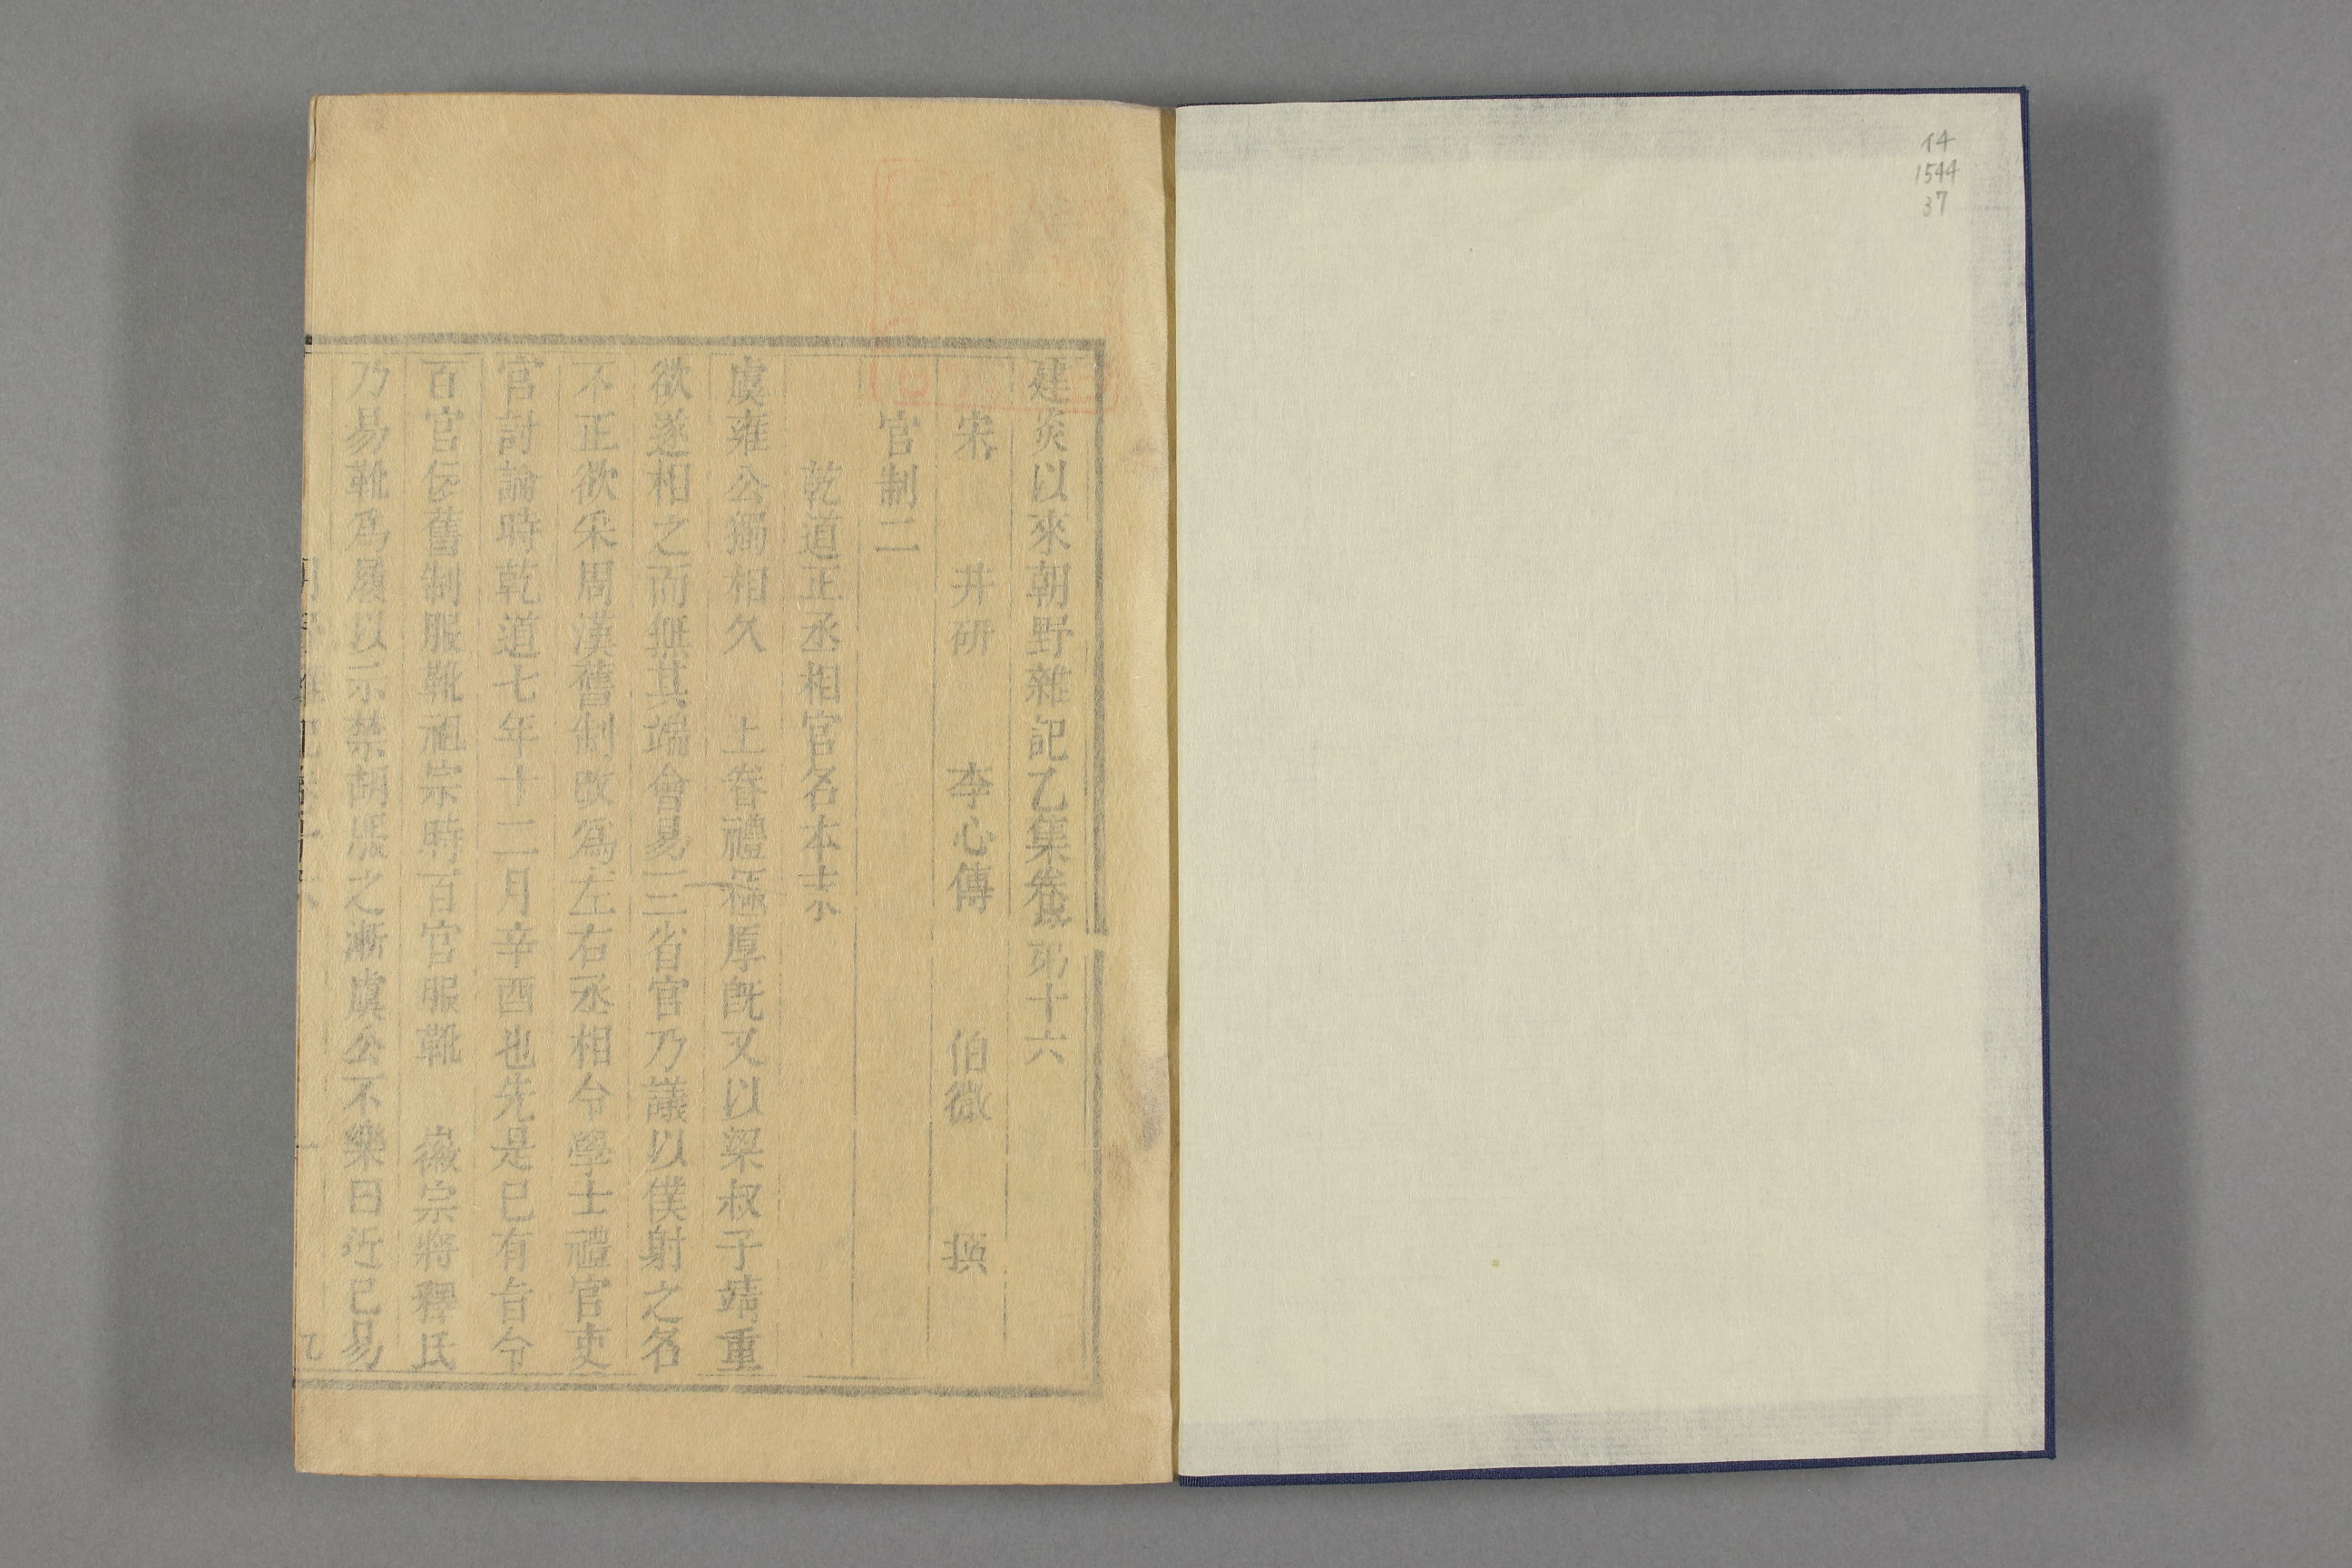 14
1544
37
建炎以來朝野雜記乙集卷第十六
宋 井研 李心傳 伯微 撰
官制二
乾道正丞相官名本末
虞雍公獨相久 上眷禮極厚旣又以梁叔子靖重
欲遂相之而無其端會易三省官乃議以僕射之名
不正欲采周漢舊制改爲左右丞相令學士禮官吏
官討論時乾道七年十二月辛酉也先是已有旨令
百官依舊制服靴祖宗時百官服靴 徽宗將釋氏
乃易靴爲履以示禁胡服之漸虞公不樂曰近已易